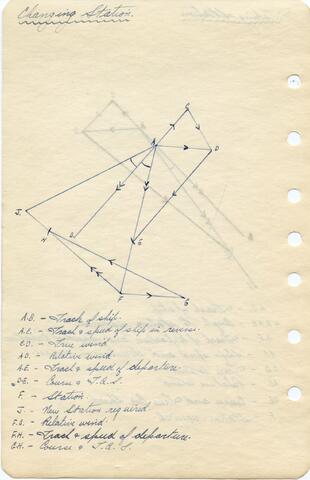 Changing Station.
C
A
D
B.
E
J.
H
F
G
A.B. - Track of ship.
A.C. - Track & speed of ship in reverse.
C.D. - True wind.
A.D. - Relative wind.
A.E. - Track & speed of departure.
D.E. - Course & T.A.S.
F. - Station
J. - New Station required.
F.G. - Relative wind.
F.H. - Track & speed of departure.
G.H. - Course & T.A.S.